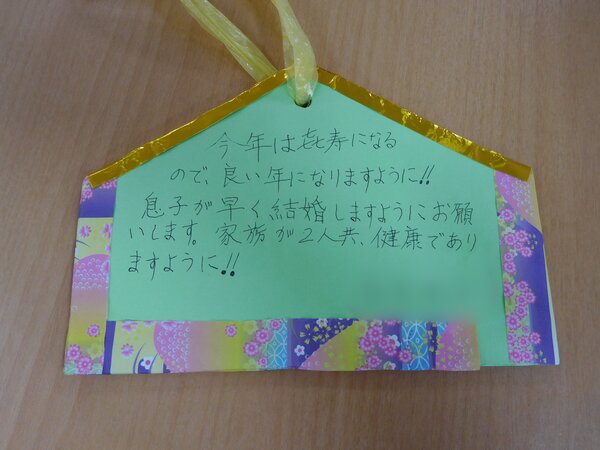 今年は喜寿になる
ので、良い年になりますように!!
息子が早く結婚しますようにお願
いします。家族が2人共、健康であり
ますように!!